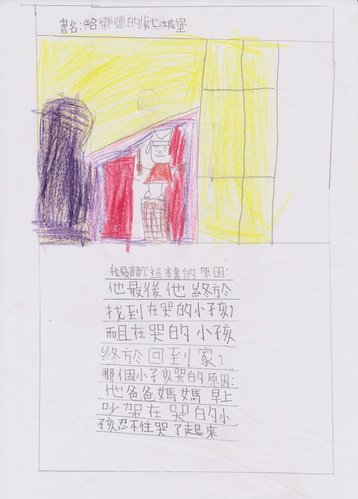 書名:哈樂德的傷心城堡
我最喜歡這本書的原因:
他最後他終於
找到在哭的小孩了
而且在哭的小孩
終於回到家了
那個小孩哭的原因:
他爸爸媽媽早上
吵架在哭的小
孩忍不住哭了起來